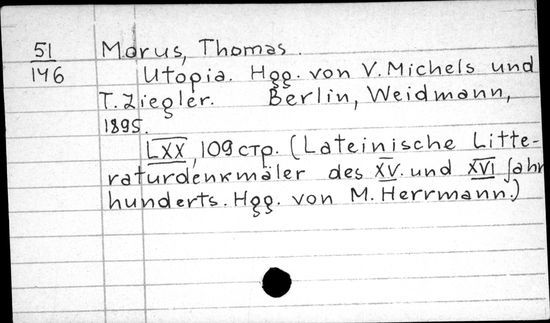 51
146
Morus, Thomas.
Utopia. Hgg. von V. Michels und
T. Ziegler. Berlin, Weidmann,
1895.
LXX, 109 стр. (Lateinische Litte-
raturdenkmäler des XV. und XVI Jahr
hunderts. Hgg. von M. Herrmann.)